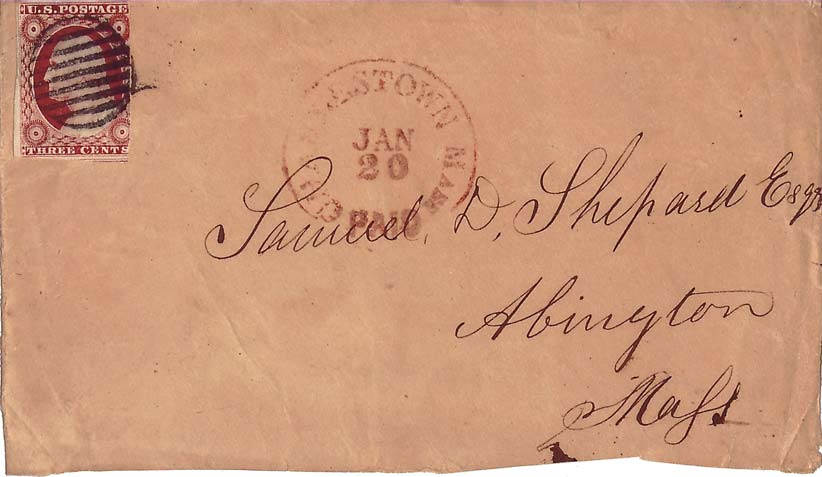 U.S. POSTAGE
THREE CENTS
CHARLESTOWN MASS
JAN
20
PAID
Samuel, D, Shepard Esqr
Abington
Mass